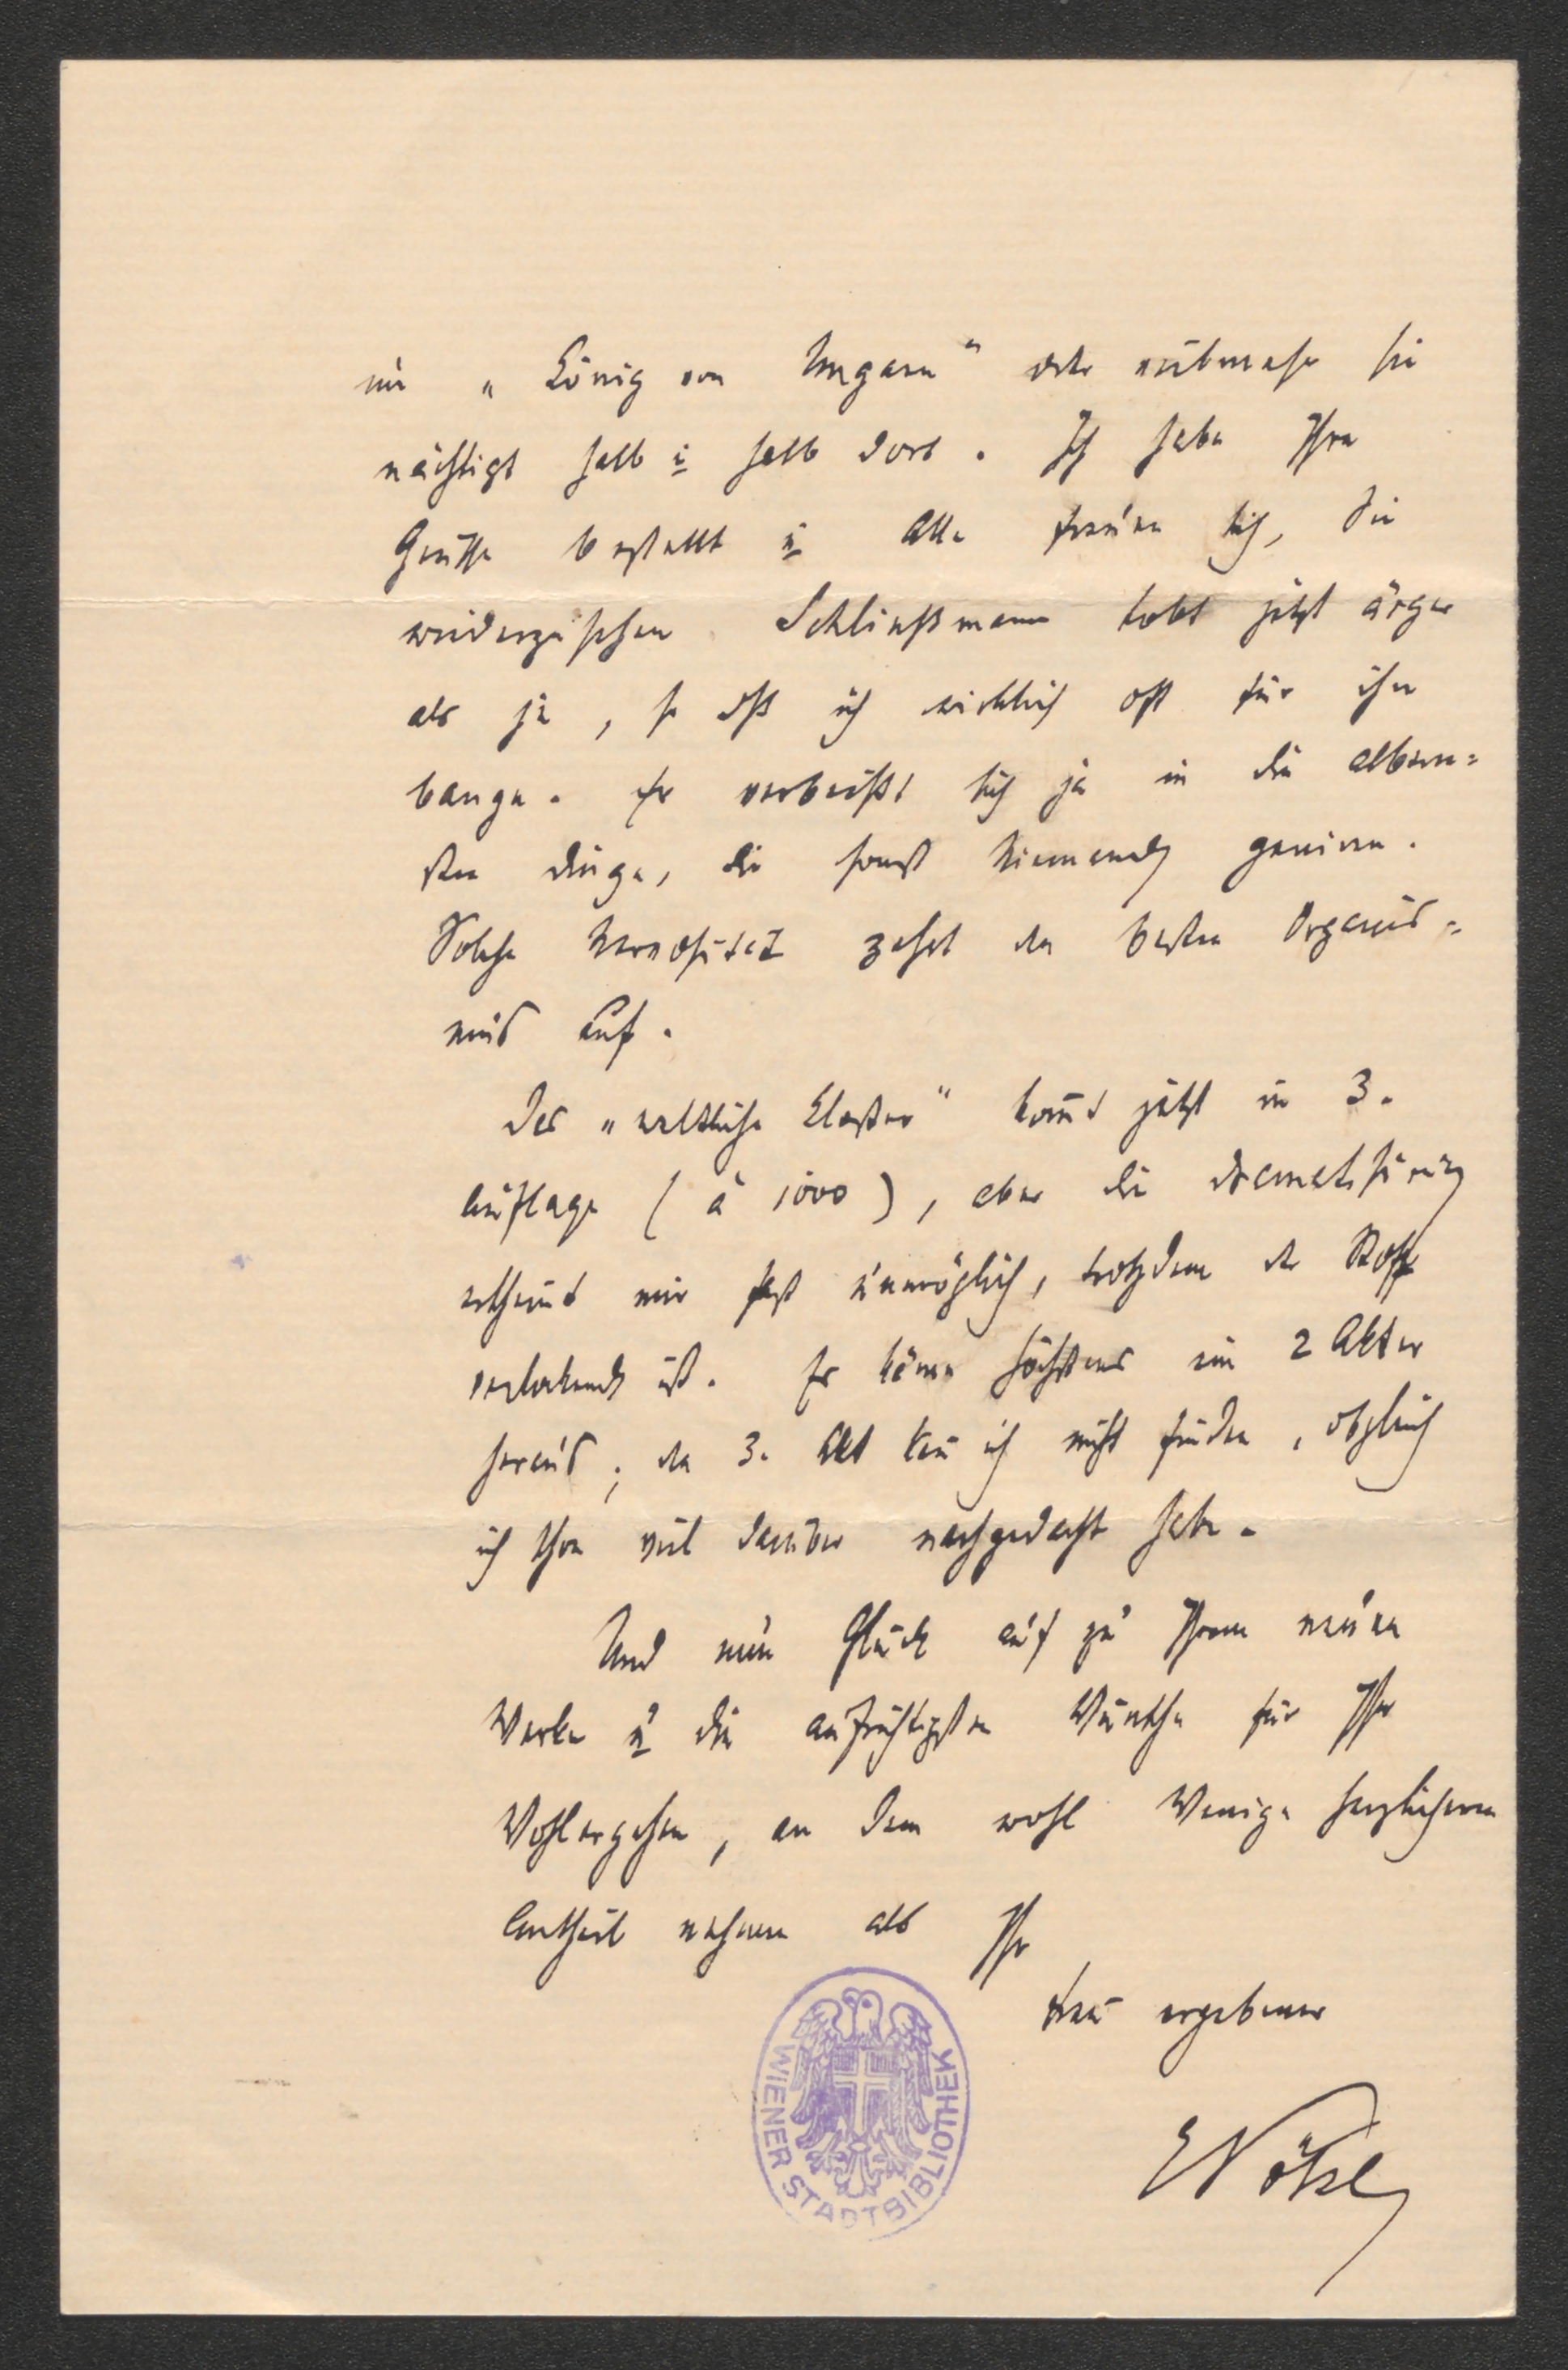 im „König von Ungarn" oder vielmehr sie
nächtigt halb u halb dort. Ich habe Ihre
Grüße bestellt u Alle freuen sich, Sie
wiederzusehen. Schließmann tobt jetzt ärger
als je, so dß ich wirklich oft für ihn
bange. Er verbeißt sich ja in die albern=
sten Dinge, die sonst Niemandz genieren.
Solche Nervosität zehrt den besten Organis=
mus auf.
Das „weltliche Kloster" komt jetzt in 3.
Auflage (à 1000), aber die Dramatisirung
scheint mir fast unmöglich, trotzdem der Stoff
verlockend ist. Es käme höchstens ein 2 Akter
heraus; den 3. Akt kan ich nicht finden, obgleich
ich schon viel darüber nachgedacht habe.
Und nun Glück auf zu Ihrem neuen
Werke u die aufrichtigsten Wünsche für Ihr
Wohlergehen, an dem wohl Wenige herzlicheren
Antheil nehmen als Ihr
treu ergebener
EPötzl
WIENER STADTBIBLIOTHEK